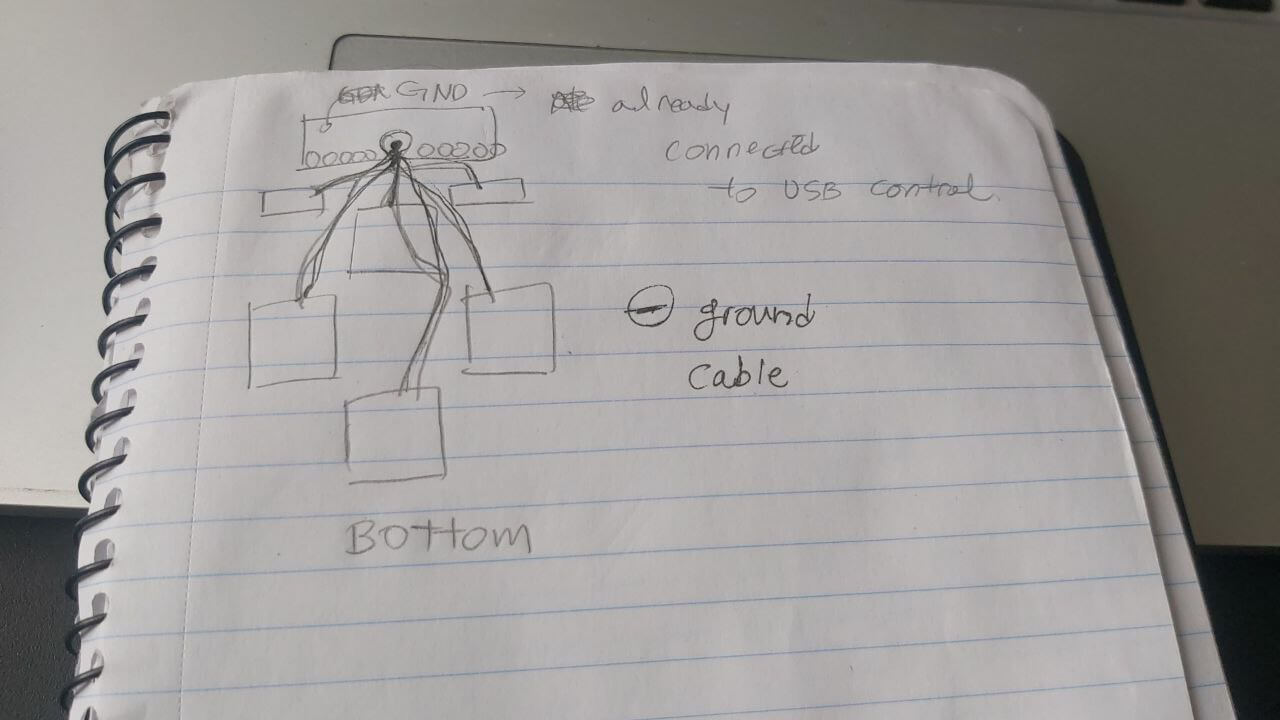 GND → already
connected
to USB control.
⊖ ground
cable
Bottom